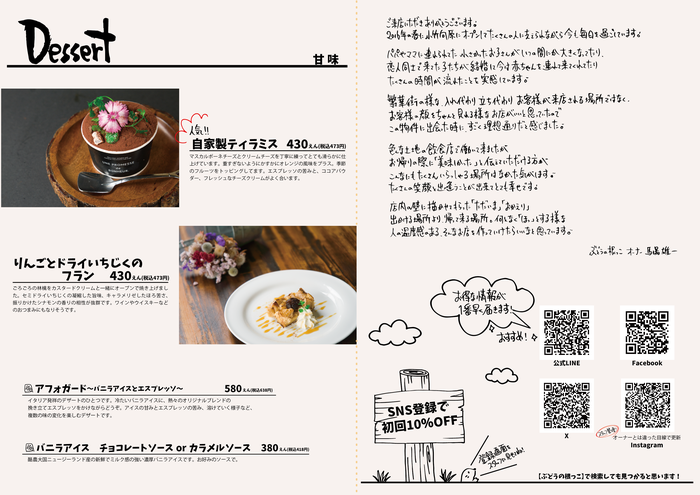 Dessert
甘味
人気!!
自家製ティラミス 430えん(税込473円)
マスカルポーネチーズとクリームチーズを丁寧に練ってとても滑らかに仕
上げています。重すぎないようにかすかにオレンジの風味をプラス。季節
のフルーツをトッピングしてます。エスプレッソの苦みと、ココアパウ
ダー、フレッシュなチーズクリームがよく合います。
りんごとドライいちじくの
フラン 430えん(税込473円)
ごろごろの林檎をカスタードクリームと一緒にオーブンで焼き上げまし
た。セミドライいちじくの凝縮した旨味、キャラメリゼしたほろ苦さ、
振りかけたシナモンの香りの相性が抜群です。ワインやウイスキーなど
のおつまみにもなりそうです。
アフォガード〜バニラアイスとエスプレッソ〜 580えん(税込638円)
イタリア発祥のデザートのひとつです。冷たいバニラアイスに、熱々のオリジナルブレンドの
挽き立てエスプレッソをかけながらどうぞ。アイスの甘みとエスプレッソの苦み、溶けていく様子など、
複数の味の変化を楽しむデザートです。
バニラアイス チョコレートソース or カラメルソース 380えん(税込418円)
酪農大国ニュージーランド産の新鮮でミルク感の強い濃厚バニラアイスです。お好みのソースで。
ご来店いただきありがとうございます。
2016年の春に小竹向原にオープンしてたくさんの人に支えられながら今も毎日を過ごしています。
パパやママに連れられてた小さかったお子さんがいつの間にか大きくなってたり、
恋人同士で来てた子たちが結婚して今は赤ちゃんを連れて来てくれてたり
たくさんの時間が流れたことを実感しています。
繁華街の様な入れ代わり立ち代わりお客様が来店される場所ではなく、
お客様の顔をちゃんと見れる様なお店がいいと思っていたので
この物件に出会た時に、すごく理想通りだと感じました。
色んな土地の飲食店で働いて来ましたが
お帰りの際に「美味しかった」と伝えていただける方が
こんなにもたくさんいらっしゃる場所はなかった気がします。
たくさんの笑顔と出逢うことが出来てとても幸せです。
店内の壁に描かせてもらった「ただいま」「おかえり」
出かける場所より、帰って来る場所。何となく「ほっ」とする様な
人の温度感のある、そんなお店を作っていけたらいいなと思っています。
ぶどうの根っこ オーナー 馬場雄一
お得な情報が
1番早く届きます!
おすすめ!
公式LINE
Facebook
SNS登録で
初回10%OFF
登録画面を
スタッフに見せてね!
X
オーナーとは違った目線で更新
Instagram
【ぶどうの根っこ】で検索しても見つかると思います!